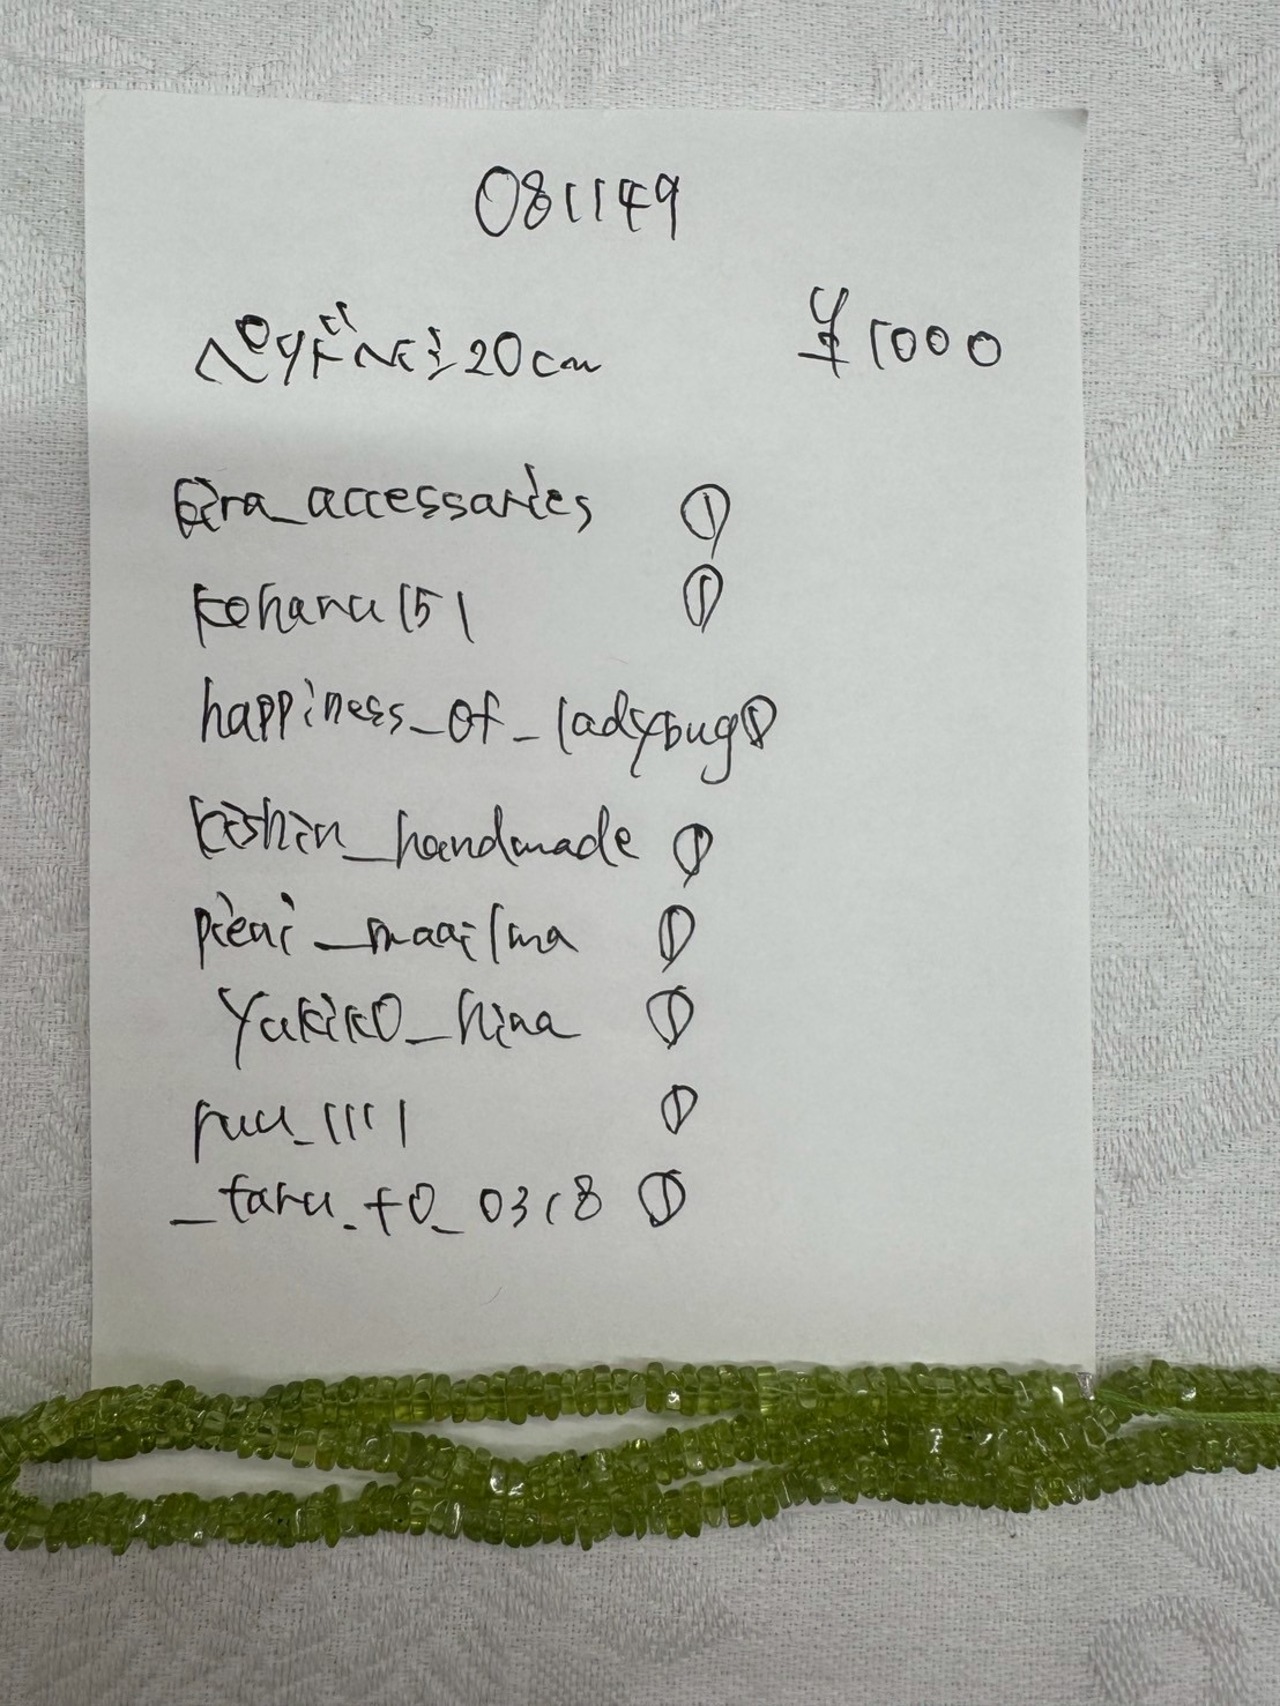 081149
ペリドヘイシ20cm ¥1000
kira_accessaries ①
koharu151 ①
happiness_of_ladybug①
kishin_handmade ①
pieni_maailma ①
yukiko_hina ①
ruu_1111 ①
_taru_to_0318 ①